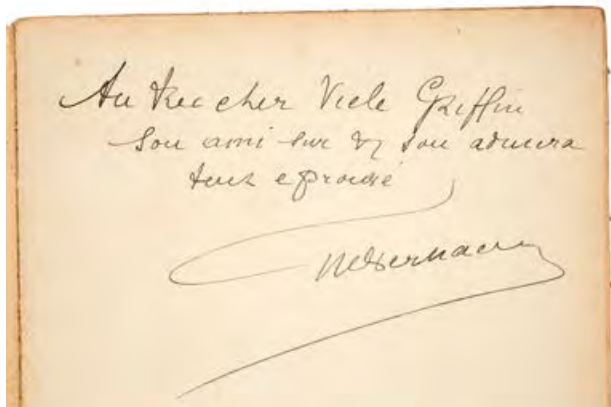 Au très cher Viele Griffin
son ami sur & son admira
teur eprouvé
Verhaeren